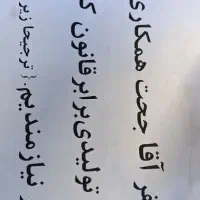 فر آقا جحت همکاری
تولیدی برابر قانون ک
نیازمندیم.{ ترجیحا زیر